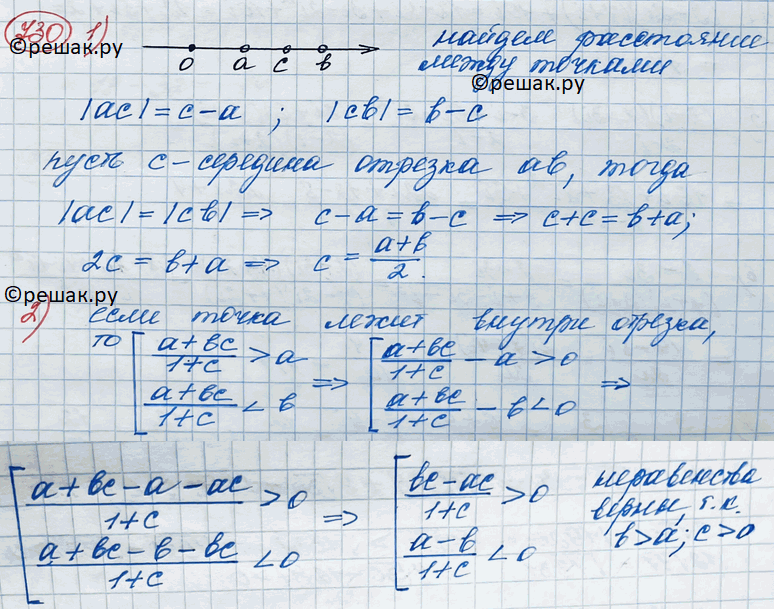 730 1)
©решак.ру
0 a c в
найдем расстояние
между точками
©решак.ру
|ac| = c - a ; |cв| = в - c
пусть c - середина отрезка aв, тогда
|ac| = |cв| => c - a = в - c => c + c = в + a;
2c = в + a => c = (a + в)/2.
©решак.ру
2) если точка лежит внутри отрезка,
то [ (a + вc)/(1 + c) > a => [ (a + вc)/(1 + c) - a > 0 =>
(a + вc)/(1 + c) < в (a + вc)/(1 + c) - в < 0
[ (a + вc - a - ac)/(1 + c) > 0 => [ (вc - ac)/(1 + c) > 0
(a + вc - в - вc)/(1 + c) < 0 (a - в)/(1 + c) < 0
неравенства
верны, т.к.
в > a; c > 0